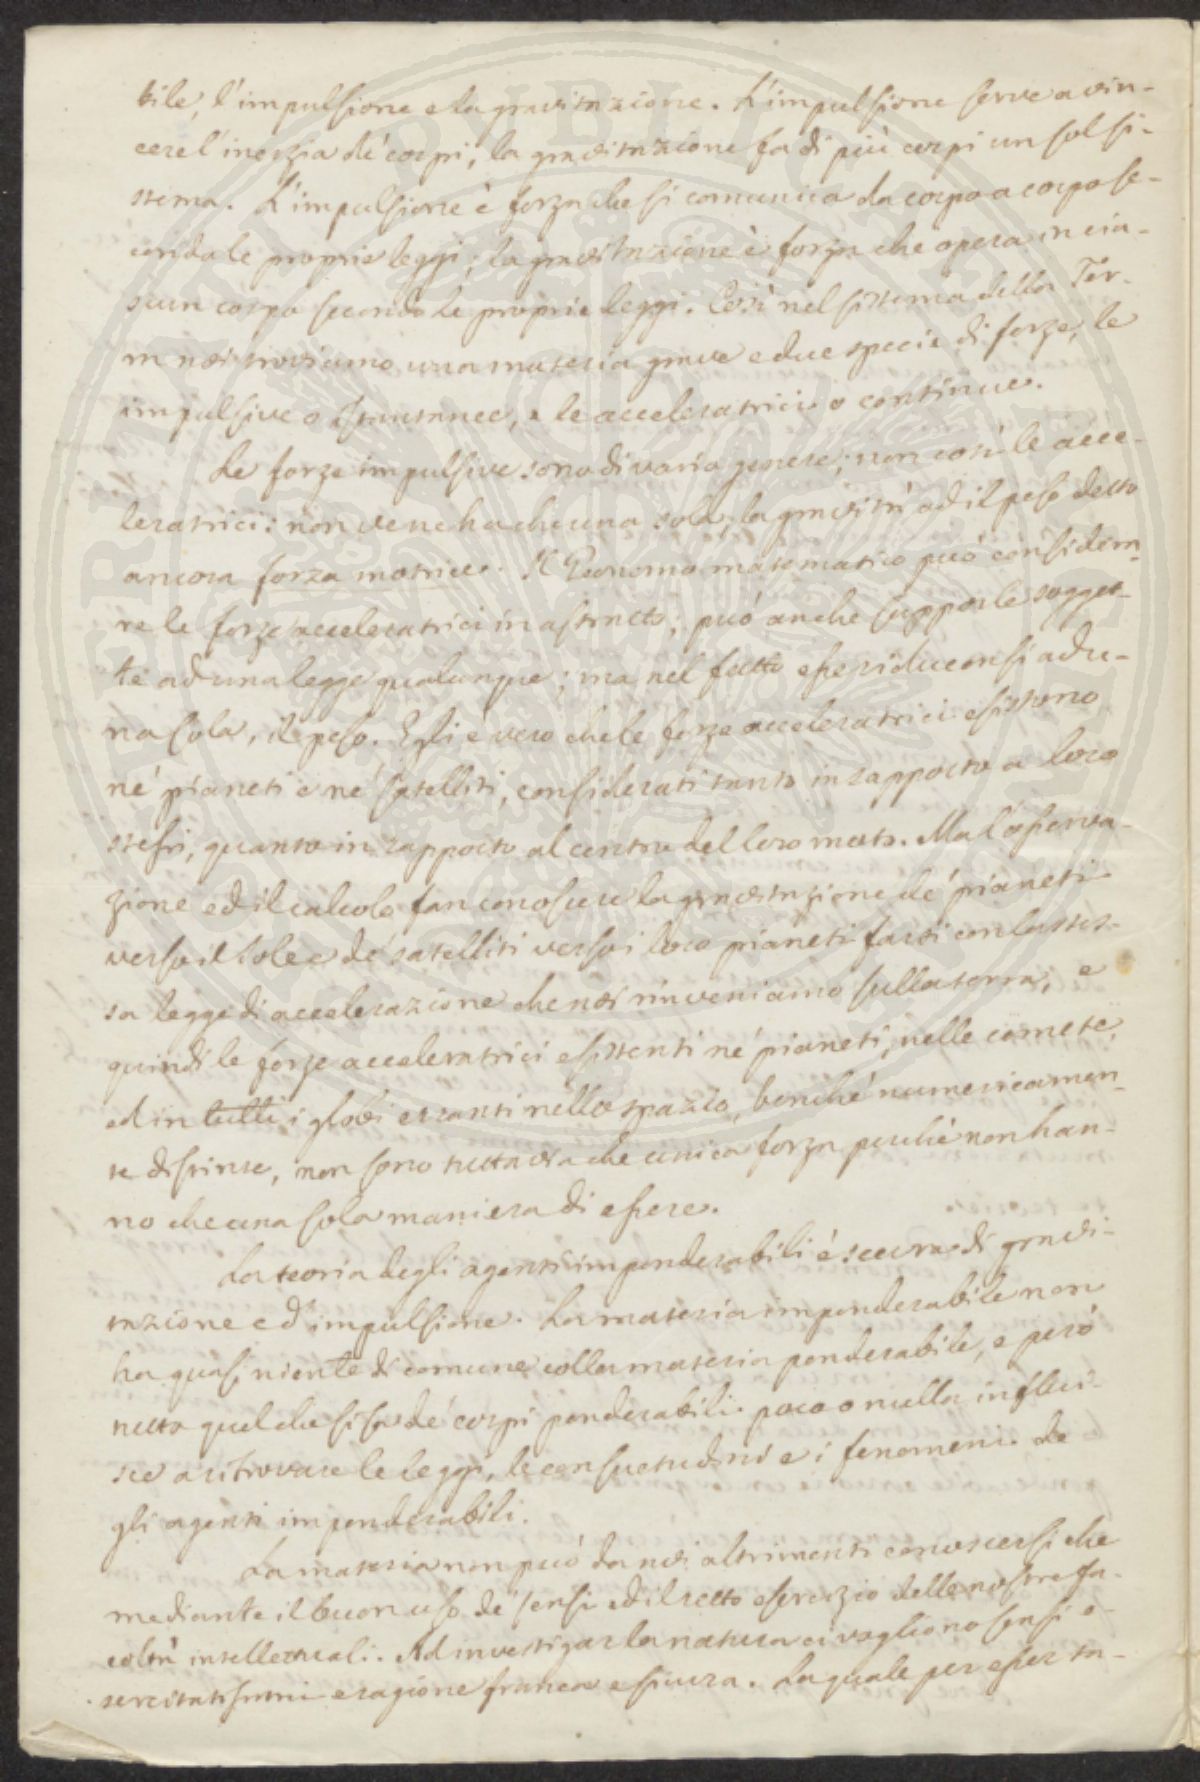 bile, l'impulsione e la gravitazione. L'impulsione serve a vin-
cere l'inerzia de' corpi, la gravitazione fa di più corpi un sol si-
stema. L'impulsione è forza che si comunica da corpo a corpo se-
condo le proprie leggi; la gravitazione è forza che opera in cia-
scun corpo secondo le proprie leggi. Così nel sistema della Ter-
ra noi troviamo una materia grave e due specie di forze, le
impulsive o istantanee, e le acceleratrici o continue.
Le forze impulsive sono di vario genere; non così le acce-
leratrici: non ve ne ha che una sola, la gravità od il peso detto
ancora forza motrice. Il matematico può considera-
re le forze acceleratrici in astratto; può anche supporle sogget-
te ad una legge qualunque; ma nel fatto esse riduconsi ad u-
na sola, il peso. Egli è vero che le forze acceleratrici esistono
ne' pianeti e ne' satelliti, considerati tanto in rapporto a loro
stessi, quanto in rapporto al centro del loro moto. Ma l'osserva-
zione ed il calcolo fan conoscere la gravitazione de' pianeti
verso il Sole e de' satelliti verso i loro pianeti farsi con la stes-
sa legge di accelerazione che noi rinveniamo sulla terra, e
quindi le forze acceleratrici esistenti ne' pianeti, nelle comete,
ed in tutti i globi erranti nello spazio, benché numericamen-
te distinte, non sono tuttavia che unica forza perché non han-
no che una sola maniera di essere.
La teoria degli agenti imponderabili è scevra di gravi-
tazione ed impulsione. La materia imponderabile non
ha quasi niente di comune colla materia ponderabile, e però
tutto quel che si sa de' corpi ponderabili poco o nulla influi-
sce a ritrovare le leggi, le consuetudini e i fenomeni de
gli agenti imponderabili.
La materia non può da noi altrimenti conoscersi che
mediante il buon uso de' sensi ed il retto esercizio delle nostre fa-
coltà intellettuali. Ad investigar la natura ci vogliono sensi e-
sercitatissimi e ragione franca e sicura. La quale per esser ta-